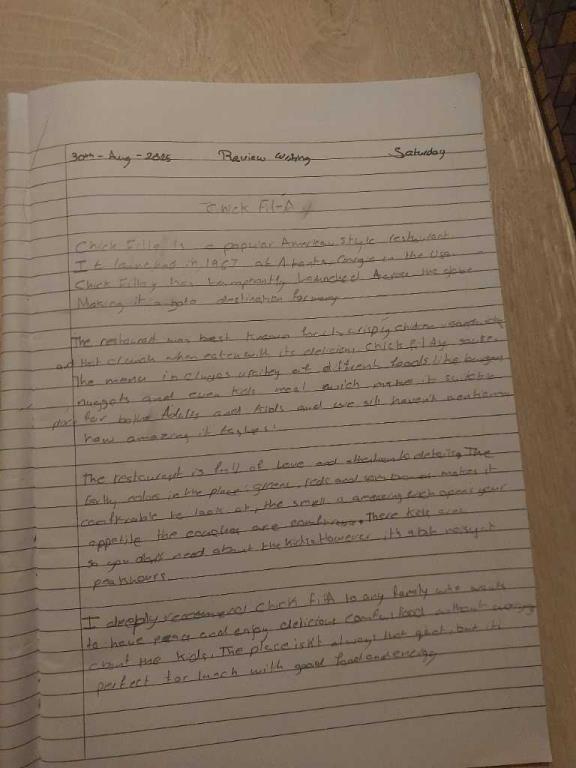 30th - Aug - 2025 Review Writing Saturday
Chick Fil-A
Chick Filla is a popular American style restaurant.
It launched in 1967 at Atlanta, Georgia in the Usa
Chick Fillay has launched Across the globe
Making it a destination for many
The restaurant was best known for its crispy chicken
and that crunch when eaten with its delicious Chick fil Ay sauce.
The menu includes of different foods like burgers
nuggets and even kids meal which makes it suitable
place for both Adults and kids and we still haven't
how amazing it tastes!
The restaurant is full of love and attention to details. The
colors in the place: greens, reds and makes it
to look at, the smell is amazing opens your
appetite the couches are There kids area
so you don't need about the kids. However its a bit at
peak hours
I deeply recommend Chick filA to any family who wants
to have peace and enjoy delicious food without worrying
about the kids. The place isn't always that quiet, but it's
perfect for lunch with good food and energy